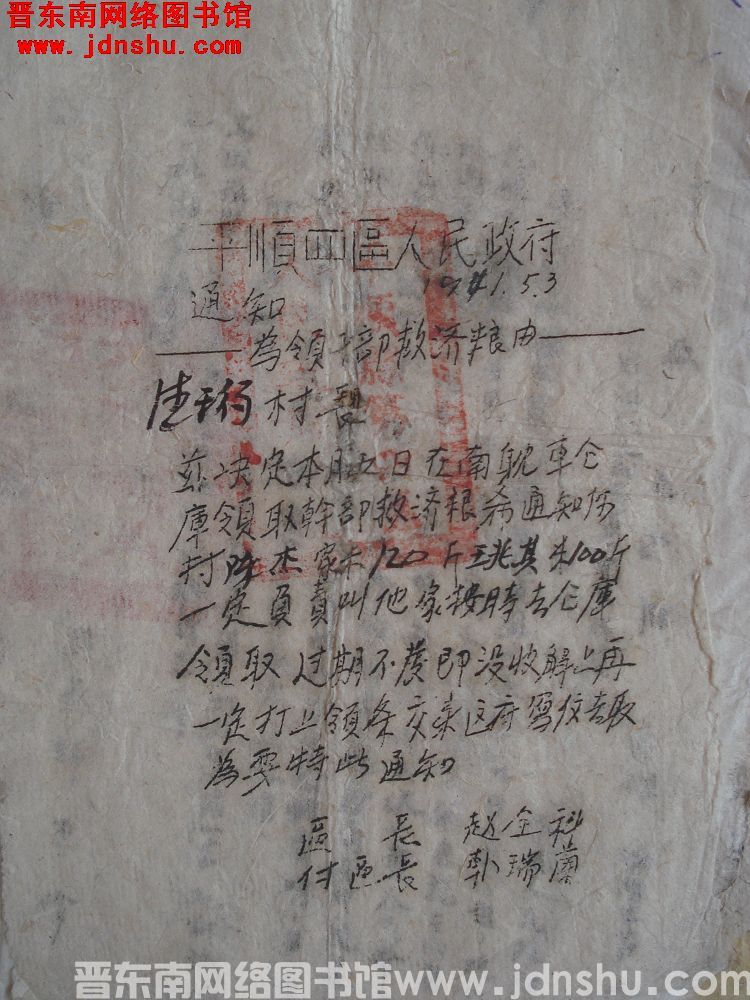 晋东南网络图书馆
www.jdnshu.com
平順四區人民政府
1951.5.3
通知
為領干部救济粮由
村長
兹决定本月五日在南耽車仓
庫領取幹部救济粮希通知你
村陈杰家米120斤王兆其米100斤
一定負責叫他家按時去仓庫
領取过期不發即没收解上再
一定打上領条交来区府写信去取
為要特此通知
區長 赵全科
付區長 瑞蘭
晋东南网络图书馆www.jdnshu.com